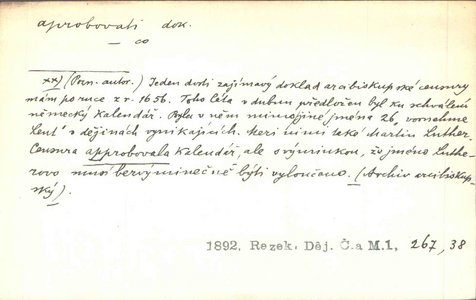 aprobovati dok.
— co
xx) (Pozn. autor.) Jeden dosti zajímavý doklad arcibiskupské censury
mám po ruce z r. 1656. Toho léta v dubnu předložen byl ku schválení
německý Kalendář. Bylo v něm mimo jiné jména 26,
v dějinách vynikajících. Mezi nimi také Martin Luther.
Censura approbovala Kalendář, ale s výminkou, že jméno Luthe-
rovo musí bezvýminečně býti vyloučeno. (Archiv arcibiskup-
ský).
1892, Rezek, Děj. Č.a M.1, 267, 38